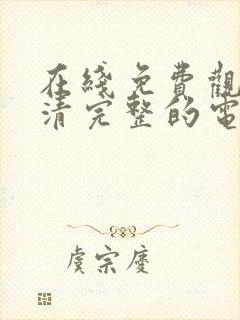 在綫免費觀
清完整的電
虞宗慶